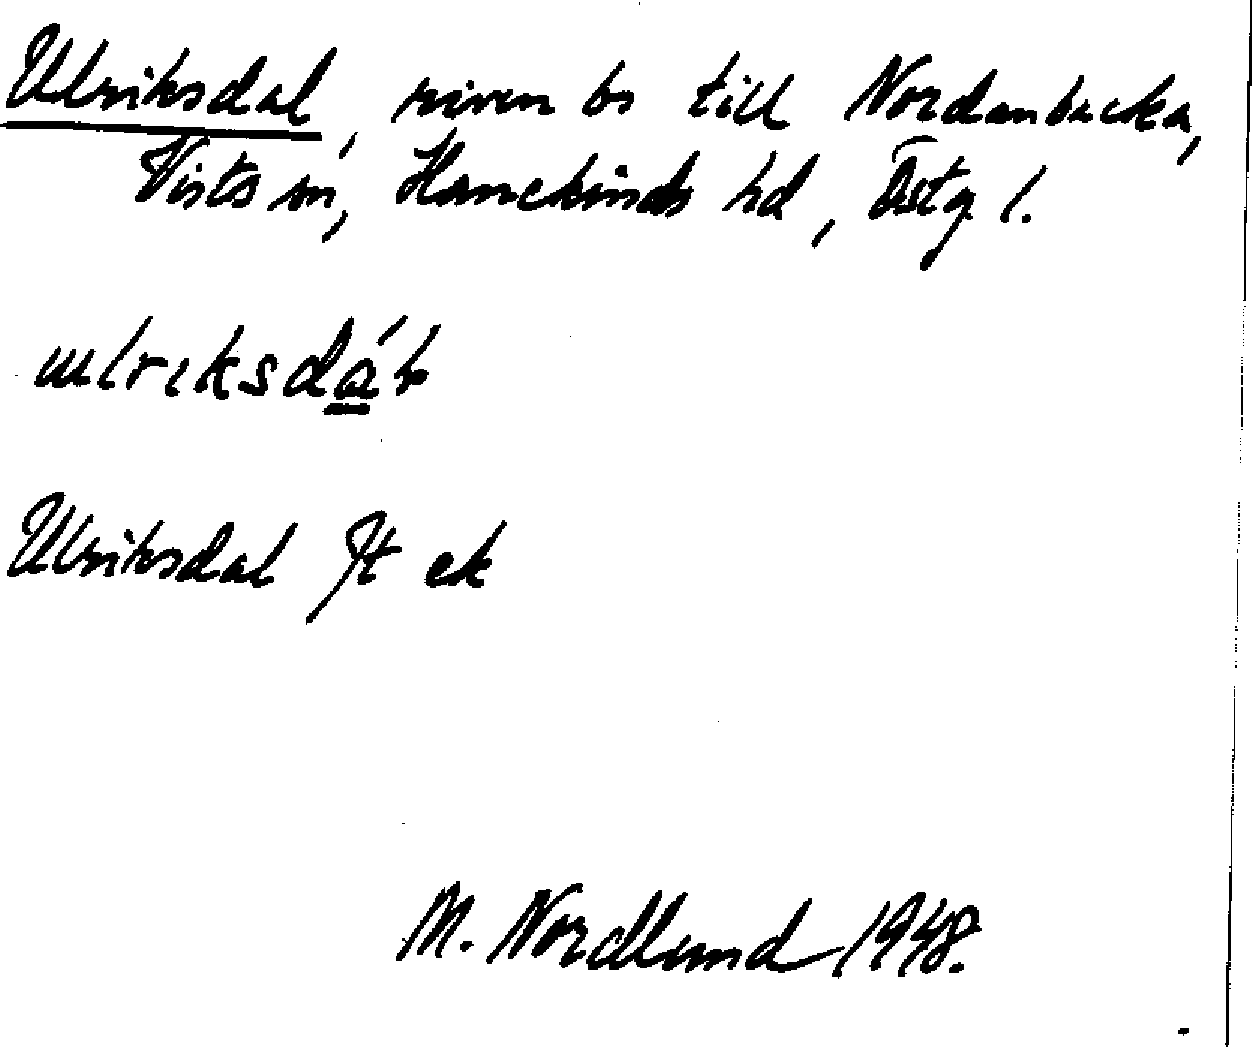 Ulriksdal, riven bs till Nordanbacka,
Vists sn, Hanekinds hd, Östg l.
ulriksdá̲l
Ulriksdal Jt ek
M. Nordlund 1948.